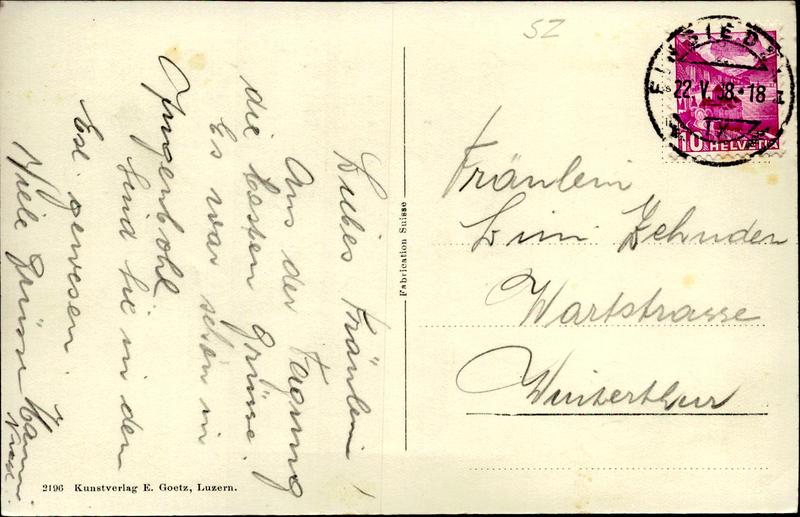 Liebes Fräulein!
Aus der Tagung
die besten Grüsse.
Es war schön in
Ingenbohl
Sind Sie in den
Exl. gewesen.
Viele Grüsse Hanni
Fräulein
Limi Zehnder
Wartstrasse
Winterthur
SZ
EINSIEDELN
22. V. 38 • 18
10 HELVETIA
Fabrication Suisse
2196 Kunstverlag E. Goetz, Luzern.